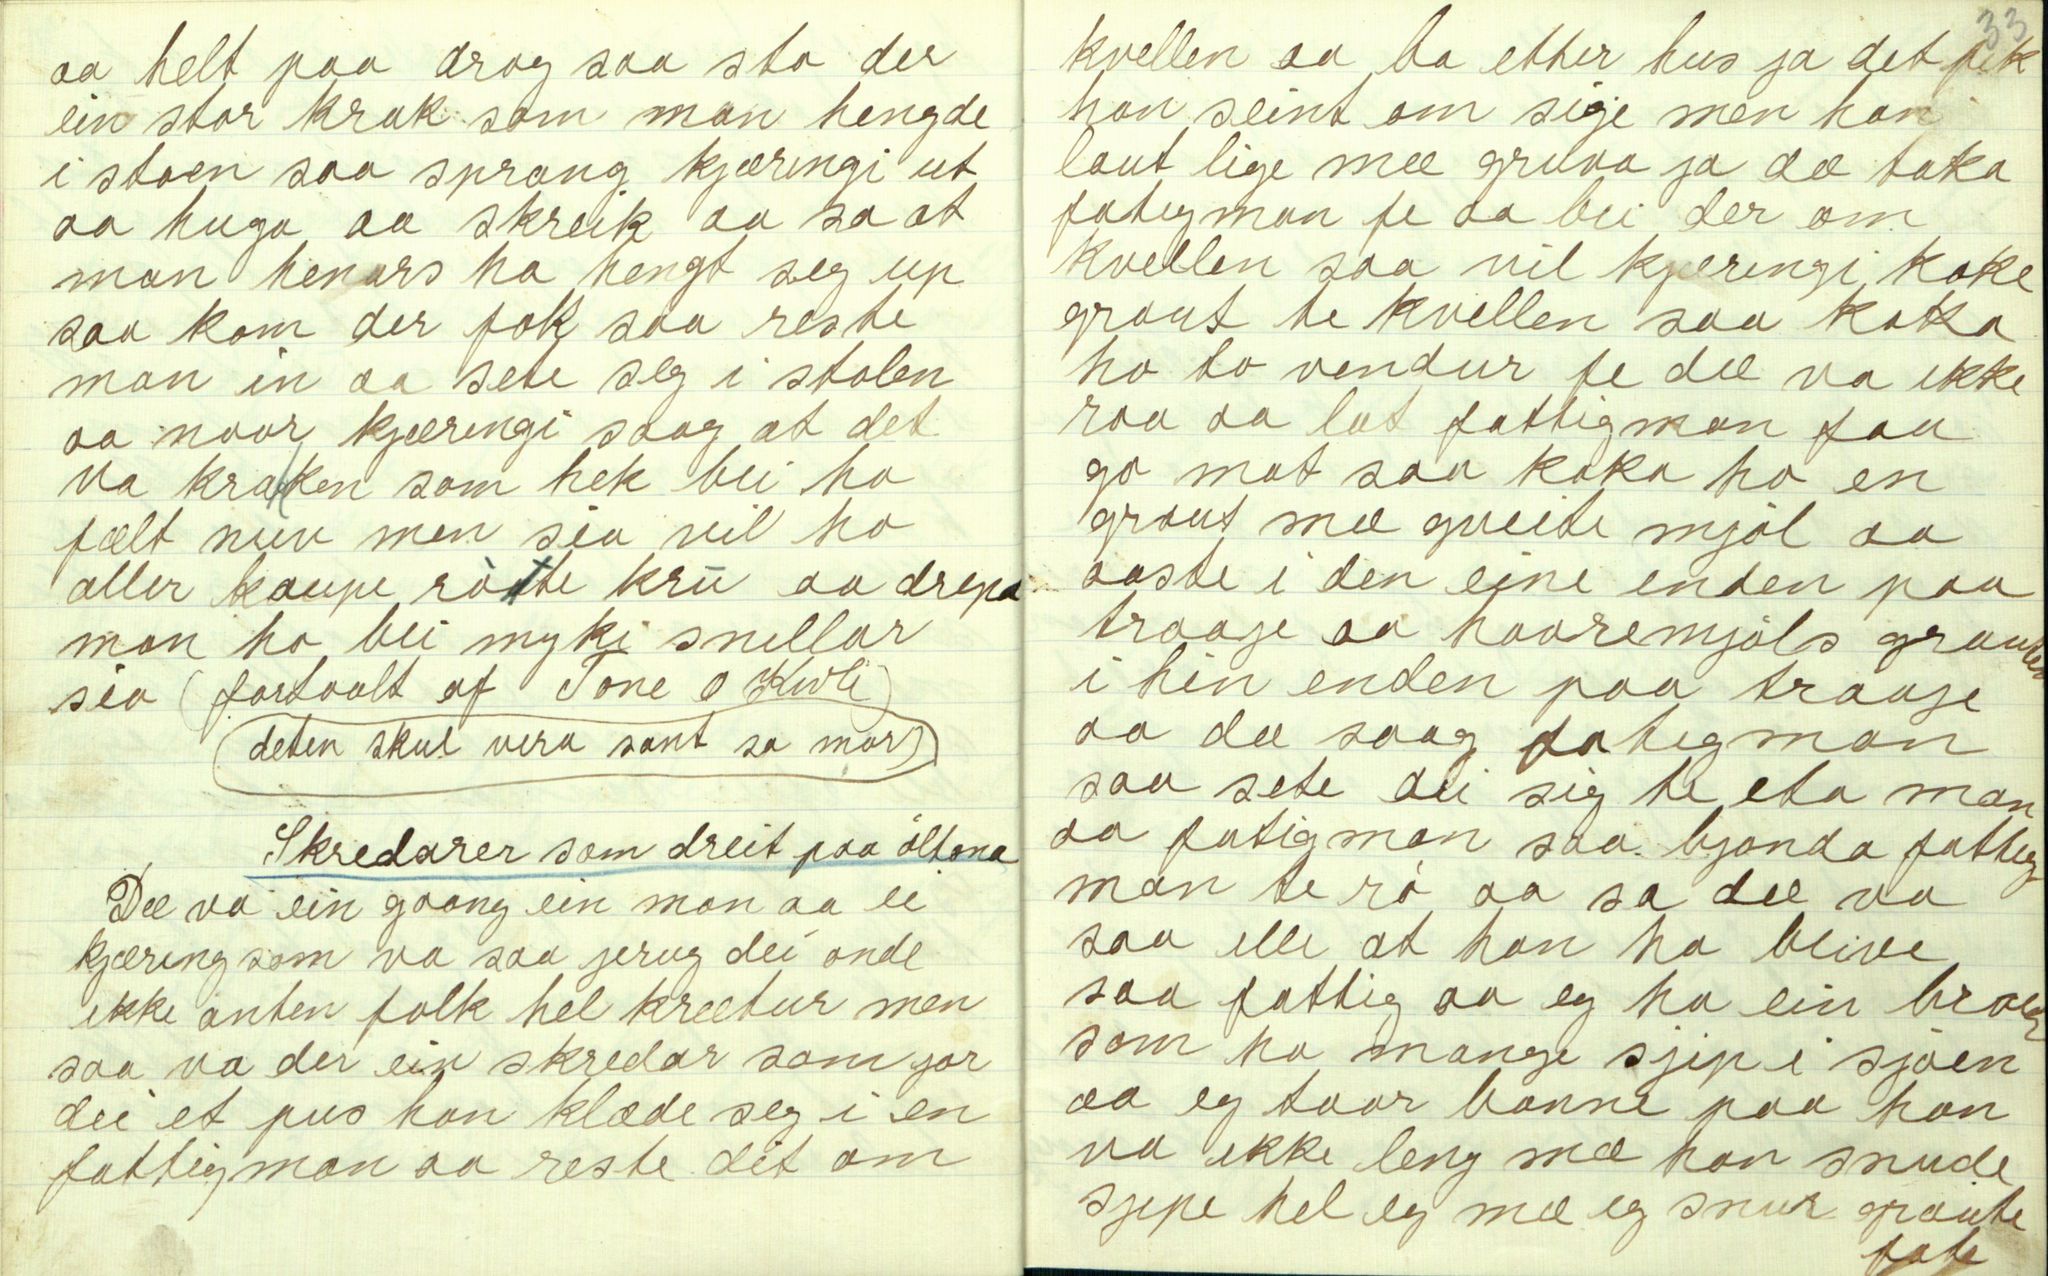 aa helt paa drog saa sto der
ein stor krak som man hengde
i stoen saa sprang kjæringi ut
aa huga aa skreik aa sa at
man henars ha hengt seg up
saa kom der folk saa reste
man in aa sete seg i stolen
aa naar kjæringi saag at det
va kraken som hek blei ho
fælt  men sia vil ho
aller kaupe ròtte krü aa drepa
man ho blei myki snillar
sia (fortaalt af Tone O Kivle)
deten skul vera sant sa mor)
Skredarer som dreit paa ôltona
Dæ va ein gaang ein man aa ei
kjæring som va saa jerug dei onde
ikke anten folk hel krætur men
saa va der ein skredar som jor
dei et pus han klæde seg i en
fattigman aa reste dit om
33
kvellen aa ba etter hus ja det fek
han seint om sije men han
laut lige mæ gruva ja dæ taka
fatigman fe aa blei der om
kvellen saa vil kjæringi koke
graut te kvellen saa koka
ho to vendur fe dæ va ikke
raa aa lat fattigman faa
go mat saa koka ho en
graut mæ gveite mjòl aa
aaste i den eine enden paa
traaje aa haaremjòls grauten
i hin enden paa traaje
aa dæ saag fatigman
saa sete dei sig te eta man
aa fatigman saa bjonda fattig
man te rò aa sa dæ va
saa ille at han ha bleive
saa fattig aa eg ha ein broer
som ha mange sjip i sjòen
aa eg taar banne paa han
va ikke leng mæ han snude
sjipe hel eg mæ eg snur graute
fate